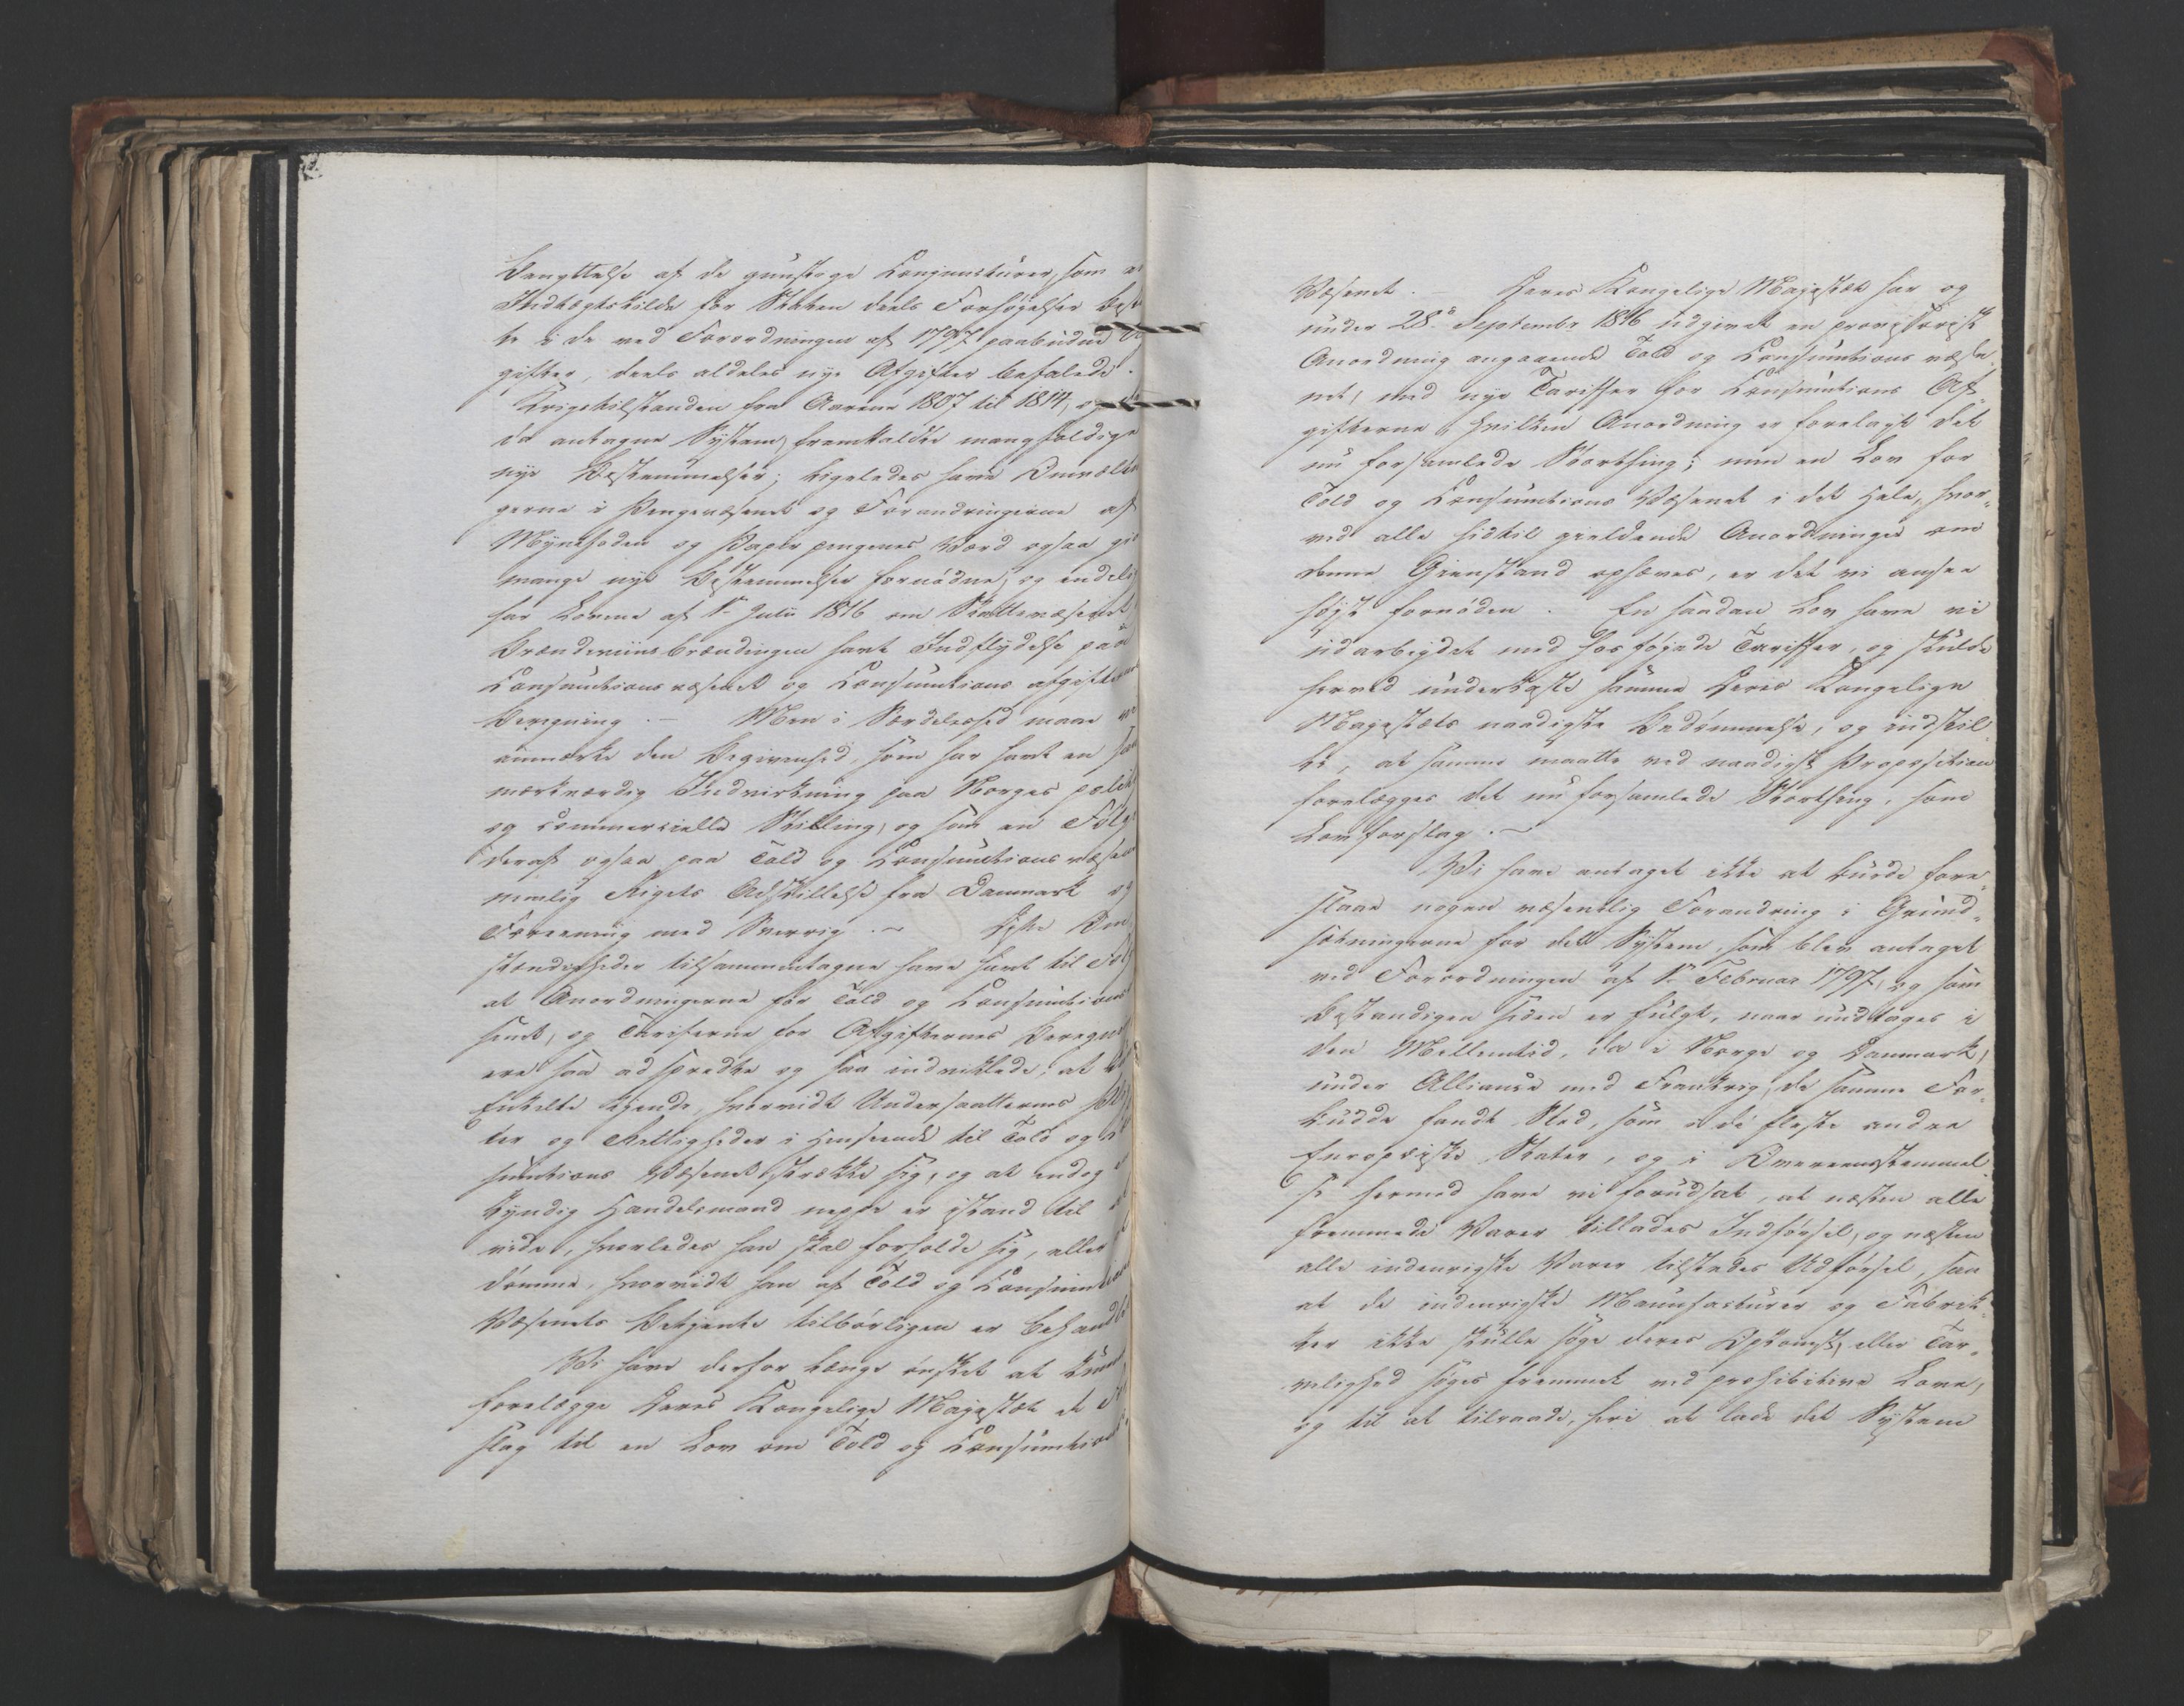 Benyttelse af de gunstige Conjuncturer, som
Indtægtskilde for Staten deels Forhøgelser
te i de ved Forordningen af 1797 paabudne
gifter, deels aldeles nye Afgifter befalede.
Krigstilstanden fra Aarene 1807 til 1814, og
da antagne System, fremkaldte mangfoldige
nye Bestemmelser; ligeledes have Omvælt
gerne i Pengevæsenet og Forandringerne af
Myntfoden og Papirpengenes Værd ogsaa
mange nye Bestemmelser fornødne, og endelig
har Lovene af 1ste Julii 1816 om Skattevæsenet
Brændeviinsbrændingen havt Indflydelse paa
Consumtionsvæsenet og Consumtions afgifternes
Beregning. — Men i Særdeleshed maae vi
anmærke den Begivenhed, som har havt en saa
mærkværdig Indvirkning paa Norges polit
og commercielle Stilling, og som en Følge
deraf ogsaa paa Told og Consumtionsvæsenet
nemlig Rigets Adskillelse fra Danmark og
Foreening med Sverrig. — Disse Om
stændigheder tilsammentagne have havt til Følge
at Anordningerne for Told og Consumtions
senet, og Tarifferne for Afgifternes Beregning
ere saa adspredte og saa indviklede, at
Enkelte kjende, hvorvidt Undersaatternes Plig
ter og Rettigheder i Henseende til Told og
sumtions Væsenet strække sig, og at endog
kyndig Handelsmand neppe er istand til at
vide, hvorledes han skal forholde sig, eller
dømme, hvorvidt han af Told og Consumtions
Væsenets Betjente tilbørligen er behandlet
Vi have derfor længe ønsket at kunne
forelægge Deres Kongelige Majestæt et
slag til en Lov om Told og Consumtions
Væsenet. — Deres Kongelige Majestæt har og
under 28de September 1816 udgivet en provisorisk
Anordning angaaende Told og Consumtions væse
net, med nye Tariffer for Consumtions Af-
gifterne, hvilken Anordning er forelagt det
nu forsamlede Storthing; men en Lov for
Told og Consumtions Væsenet i det Hele, hvor-
ved alle hidtil gieldende Anordninger om
denne Gienstand ophæves, er det vi ansee
høist fornøden. En saadan Lov have vi
udarbejdet med hosføjede Tariffer, og skulde
herved underkaste samme Deres Kongelige
Majestæts naadigste Bedømmelse, og indstil-
le, at samme maatte ved naadigst Proposition
forelægges det nu forsamlede Storthing, som
Lovforslag. —
Vi have antaget ikke at burde fore-
slaae nogen væsentlig Forandring i Grund-
sætningerne for det System, som blev antaget
ved Forordningen af 1ste Februar 1797, og som
bestandigen siden er fulgt, naar undtages i
den Mellemtid, da i Norge og Danmark,
under Alliance med Frankrig, de samme For-
budde fandt Sted, som i de fleste andre
Europæiske Stater, og i Overeensstemmel-
se hermed have vi forudsat, at næsten alle
fremmede Varer tillades Indførsel, og næsten
alle indenrigske Varer tilstedes Udførsel, saa
at de indenrigske Manufacturer og Fabrik-
ker ikke skulle søge deres Opkomst, eller Tar-
velighed søges fremmet ved prohibitive Love,
og til at tilraade, heri at lade det System